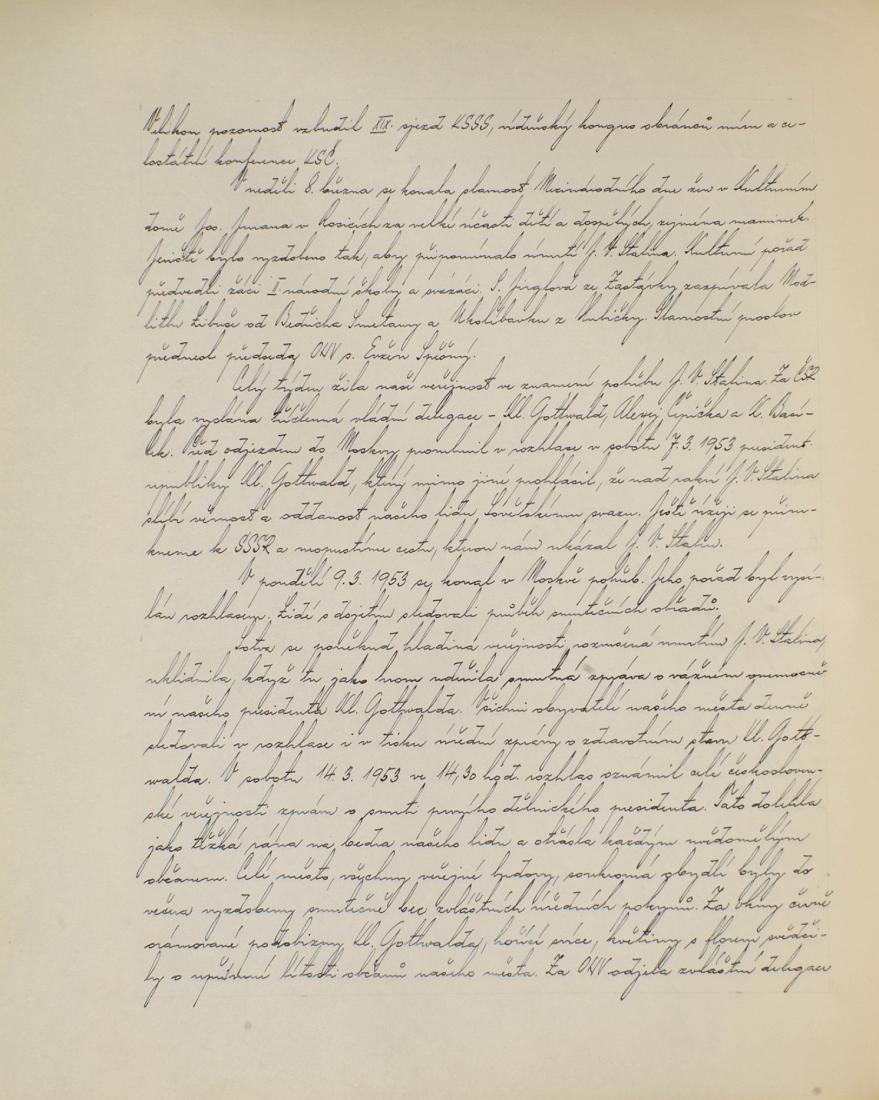 Velikou pozornost vzbudil XIX. sjezd KSSS, vídeňský kongres obránců míru a ce-
lostátní konference KSČ.
V neděli 8. března se konala slavnost Mezinárodního dne žen v Kulturním
domě Jos. Jirana v Rosicích za velké účasti dětí a dospělých, zejména maminek.
Jeviště bylo vyzdobeno tak, aby připomínalo úmrtí J. V. Stalina. Kulturní pořad
předvedli žáci II. národní školy a svazáci. S. Jirglová ze Zastávky zazpívala Mod-
litbu Libuše od Bedřicha Smetany a Ukolébavku z Hubičky. Slavnostní proslov
přednesl předseda OAV s. Evžen Spěšný.
Celý týden žila naše veřejnost ve znamení pohřbu J. V. Stalina. Za ČSR
byla vyslána tříčlenná vládní delegace - Kl. Gottwald, Alexej Čepička a V. Baci-
lek. Před odjezdem do Moskvy promluvil v rozhlase v sobotu 7.3. 1953 president
republiky Kl. Gottwald, který mimo jiné prohlásil, že nad rakví J. V. Stalina
slíbí věrnost a oddanost našeho lidu Sovětskému svazu. Ještě úžeji se přim-
kneme k SSSR a neopustíme cestu, kterou nám ukázal J. V. Stalin.
V pondělí 9.3. 1953 se konal v Moskvě pohřeb. Jeho pořad byl vysí-
lán rozhlasem. Lidé s dojetím sledovali průběh smutečních obřadů.
Sotva se poněkud hladina veřejnosti, rozrušená úmrtím J. V. Stalina,
uklidnila, když tu jako hrom udeřila smutná zpráva o vážném onemocně-
ní našeho presidenta Kl. Gottwalda. Všichni obyvatelé našeho města denně
sledovali v rozhlase i v tisku úřední zprávy o zdravotním stavu Kl. Gott-
walda. V sobotu 14.3. 1953 ve 14,30 hod. rozhlas oznámil celé českosloven-
ské veřejnosti zprávu o smrti prvního dělnického presidenta. Tato dolehla
jako těžká rána na bedra našeho lidu a otřásla každým uvědomělým
občanem. Celé město, všechny veřejné budovy, soukromá obydlí byly do
večera vyzdobeny smutečně bez zvláštních úředních pokynů. Za okny černě
orámované podobizny Kl. Gottwalda, hořící svíce, květiny s florem svědči-
ly o upřímné lítosti občanů našeho města. Za OAV odjela zvláštní delegace